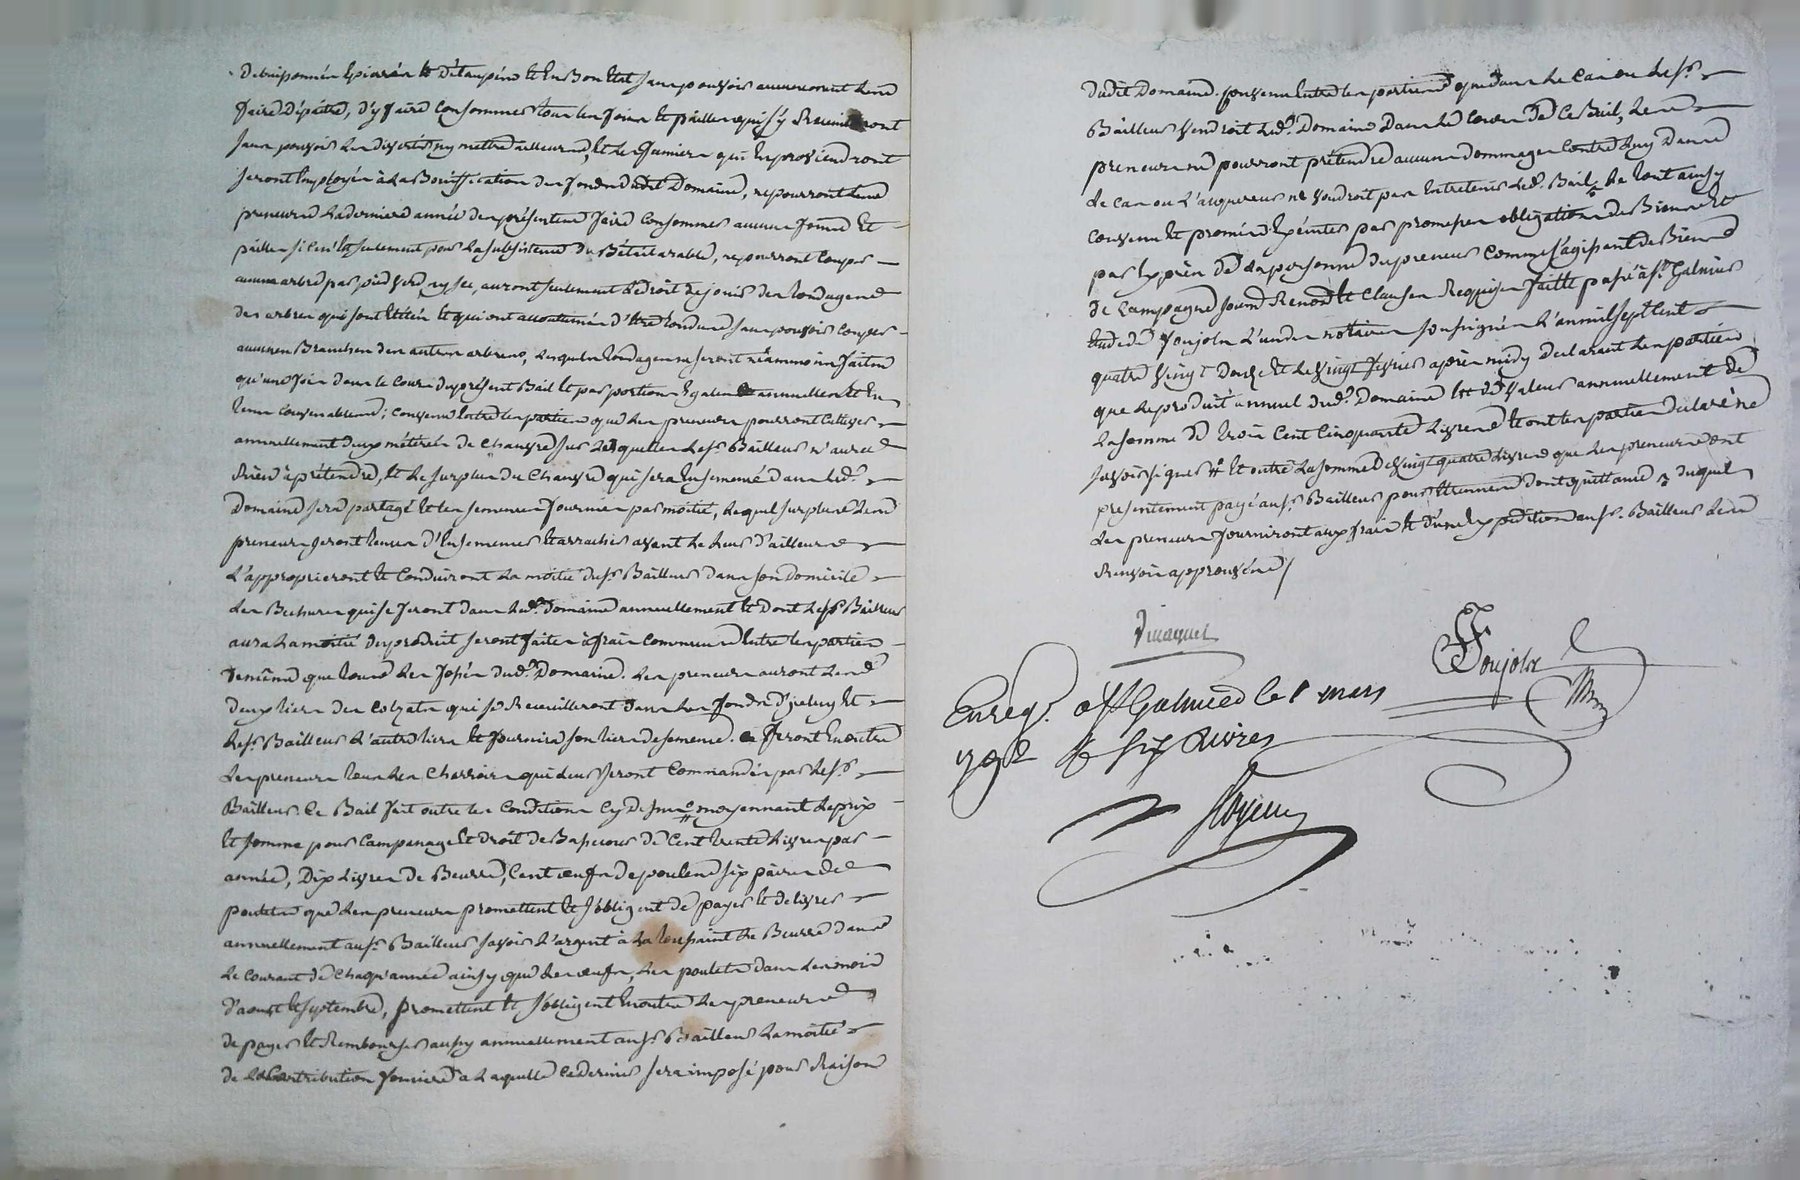 debuissonnés épierrés et détaupés et en bon état sans pouvoir aucunement
faire dépaitre, d'y faire consommer tous les foins et pailles qui s'y recueilleront
sans pouvoir les divertir ny mettre ailleurs, et les fumiers qui en proviendront
seront employés à la bonification des fonds dudit Domaine, ne pourront
preneurs la derniere année des présentes faire consommer aucuns foins et
pailles si ce n'est seulement pour la subsistence du Bétail arable, ne pourront couper
aucun arbre par pied verd, ny sec, auront seulement le droit de jouir des tondages
des arbres qui sont têtés et qui ont accoutumés d'être tondus sans pouvoir couper
aucunes Branches des autres arbres, lesquels tondages ne seront néammoins faits
qu'une fois dans le cours du présent Bail et par portions égales annuelles et en
tems convenables; convenu entre les parties que les preneurs pourront cultiver
annuellement deux métérées de chanvre sur lesquelles led. sr. Bailleur n'aura
rien à prétendre, et le surplus du Chanvre qui sera ensemencé dans led.
Domaine sera partagé et les semences fournies par moitié, lequel surplus
preneurs seront tenus d'ensemencer et arracher ayant le lieu d'ailleurs
l'approprieront et conduiront la moitié dud. sr. Bailleur dans son domicile
les Bechures qui se feront dans led. domaine annuellement et dont led. sr. Bailleur
aura la moitié du produit seront faites à frais communs entre les parties
de même que toutes les fossés dud. Domaine. Les preneurs auront
deux tiers des colzats qui se recueilleront dans les fonds d'iceluy et
led. sr. Bailleur l'autre tiers et fournira son tiers de semence. feront en outre
les preneurs tous les charrois qui leur seront commandés par led. sr.
Bailleur. Ce Bail fait outre les conditions cy dessus moyennant le prix
et somme pour campanage et droit de Bassecour de cent trente livres par
année, dix livres de Beurre, cent œufs de poules six paires de
poulets que les preneurs promettent et s'obligent de payer et delivrer
annuellement aud. sr. Bailleur savoir l'argent à la toussaint le Beurre dans
le courant de chaqu'année ainsy que les œufs, les poulets dans les mois
d'aoust et septembre, promettent et s'obligent en outre les preneurs
de payer et rembourser aussy annuellement aud. sr. Bailleur la moitié
de la contribution fonciere a laquelle ce dernier sera imposé pour raison
dudit Domaine. convenu entre les parties que dans le cas ou led. sr.
Bailleur vendroit led. Domaine dans le cours de ce Bail,
preneurs ne pourront prétendre aucuns dommages contre luy dans
le cas ou l'acquereur ne voudroit pas entretenir led. Bail, le tout ainsy
convenu et promis exécuter par promesses obligation de Biens et
par exprès de la personne du preneur comme s'agissant de Biens
de campagne soum. Renon. et Clauses Requises faitte passé à St. Galmier
etude de foujols l'un des notaires soussignés l'an mil sept cent
quatre vingt douze et le vingt fevrier après midy declarant les parties
que le produit annuel dud. Domaine est de valeur annuellement de
la somme de trois cent cinquante livres et ont les parties declaré ne
savoir signer et outre la somme de vingt quatre livres que les preneurs ont
présentement payé aud. sr. Bailleur pour étrennes dont quittance duquel
les preneurs fourniront aux frais et d'une expédition aud. sr. Bailleur
Renvois approuvés
foujols
Enreg. a St Galmier le 1 mars
1792 six livres